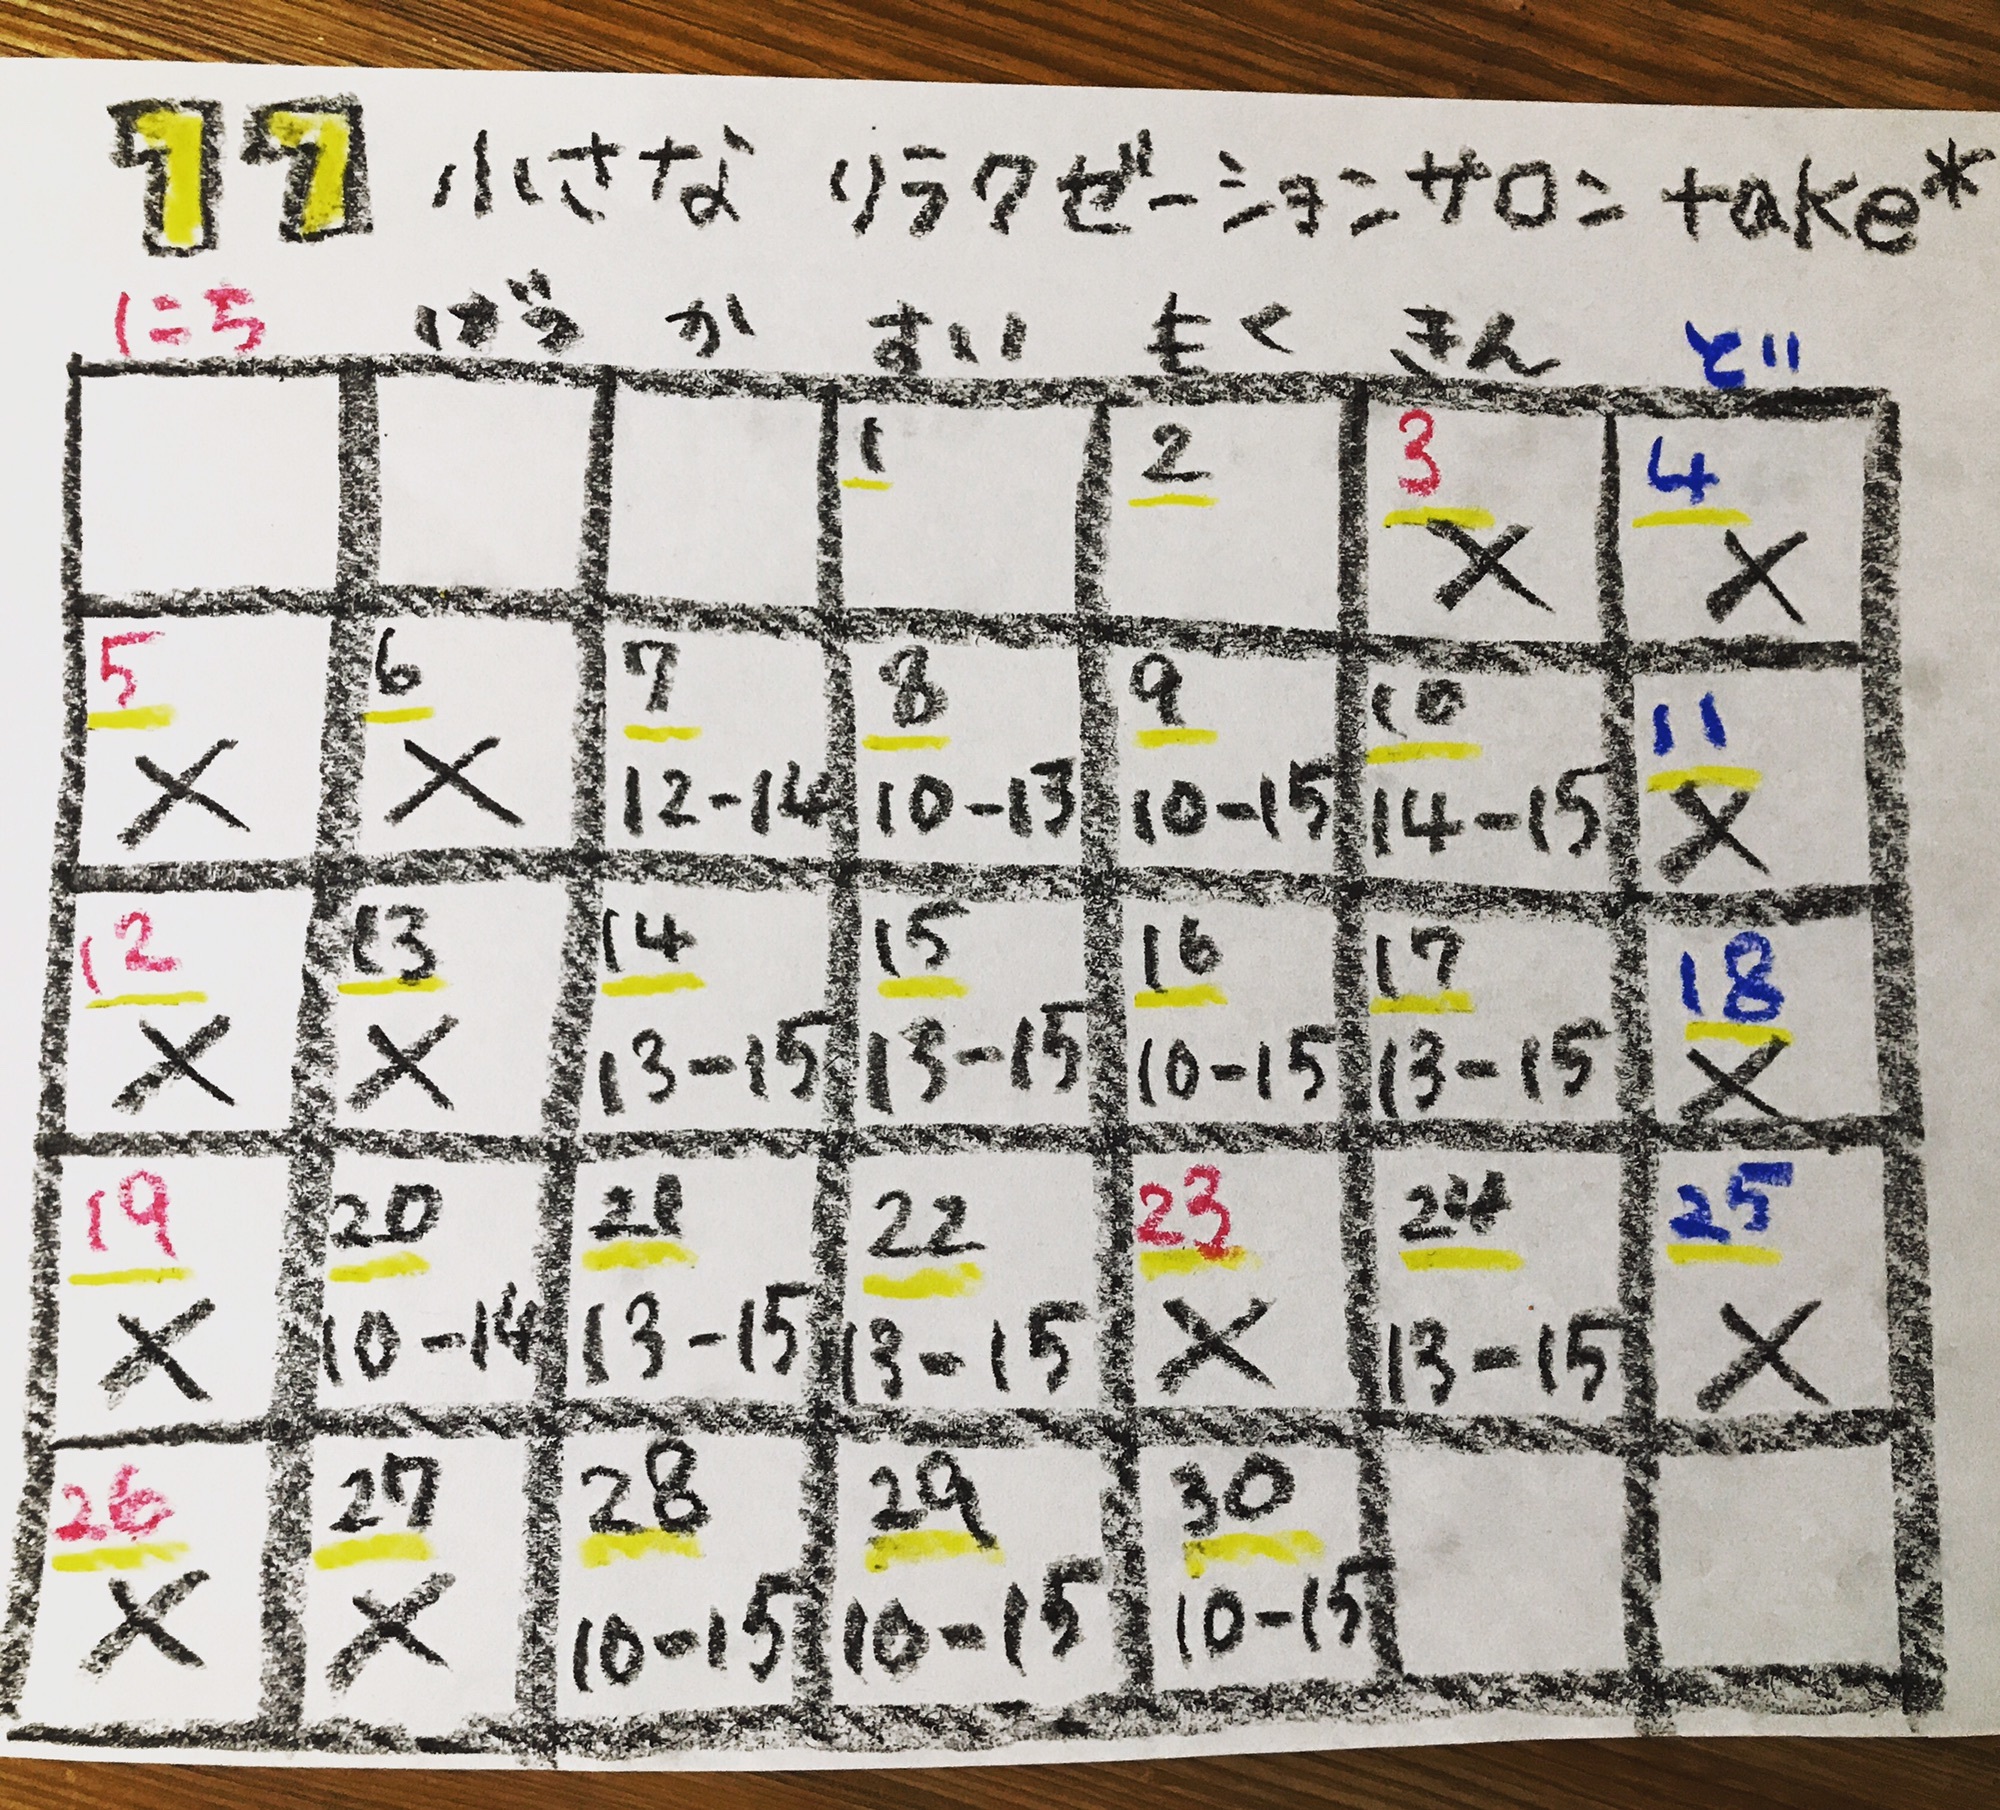 11 小さな リラクゼーションサロン take*
にち げつ か すい もく きん どに
1 2 3 4
X X
5 6 7 8 9 10 11
X X 12-14 10-13 10-15 14-15 X
12 13 14 15 16 17 18
X X 13-15 13-15 10-15 13-15 X
19 20 21 22 23 24 25
X 10-14 13-15 13-15 X 13-15 X
26 27 28 29 30
X X 10-15 10-15 10-15